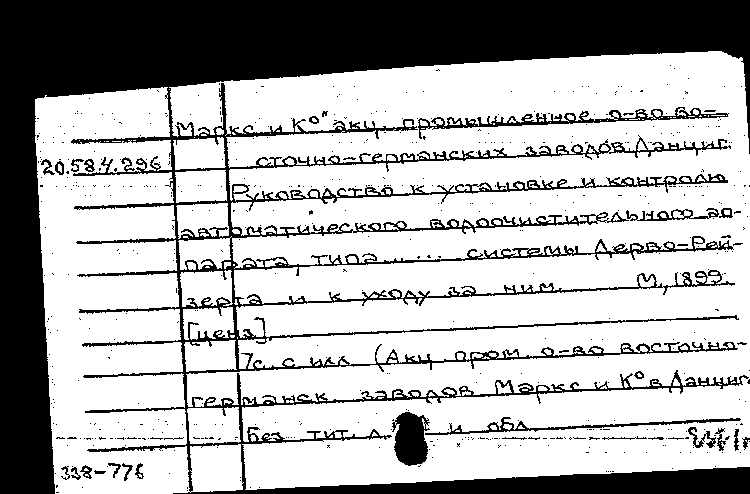 Маркс и К°" акц. промышленное о-во во-
20.584.296 сточно-германских заводов Данциг.
Руководство к установке и контролю
автоматического водоочистительного ап-
парата, типа ...... системы Дерво-Рей-
зерта и к уходу за ним. М., 1899.
[ценз].
7с. с илл (Акц. пром. о-во восточно-
германск. заводов Маркс и К° в Данциг
Без тит. л. и обл.
338-776